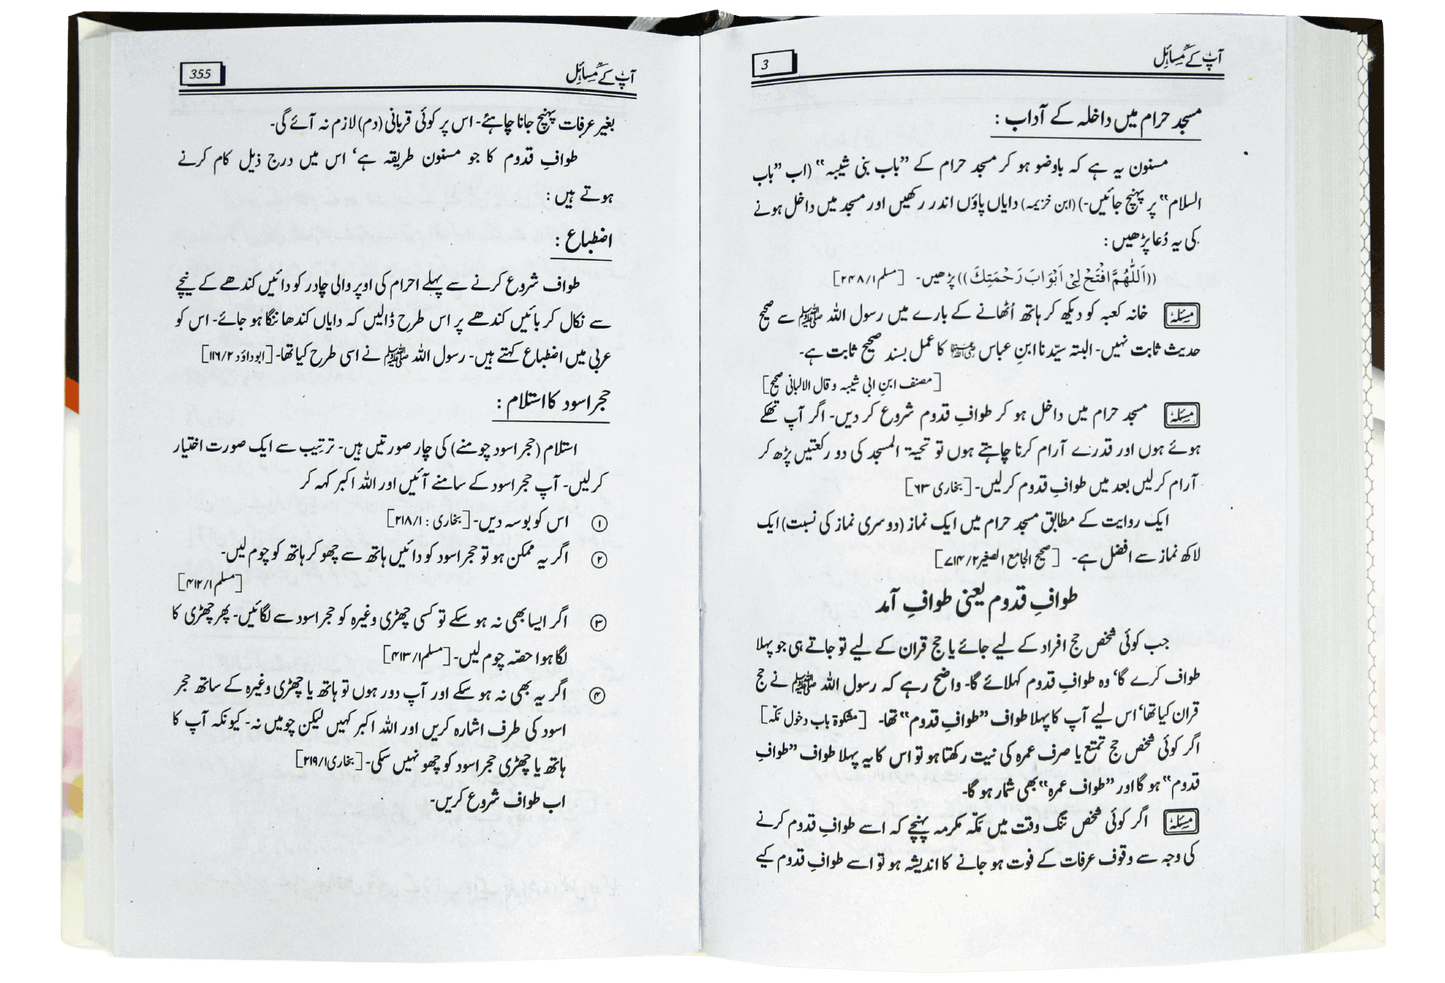 آپ کے مسائل
3
مسجد حرام میں داخلہ کے آداب :
مسنون یہ ہے کہ باوضو ہو کر مسجد حرام کے ”باب بنی شیبہ“ (اب ”باب
السلام“ پر پہنچ جائیں-) (ابن خزیمہ) دایاں پاؤں اندر رکھیں اور مسجد میں داخل ہونے
کی یہ دُعا پڑھیں :
((اَللّٰهُمَّ افْتَحْ لِیْ اَبْوَابَ رَحْمَتِكَ)) پڑھیں- [مسلم ۲۴۸/۱]
مسئلہ خانہ کعبہ کو دیکھ کر ہاتھ اُٹھانے کے بارے میں رسول اللہ ﷺ سے صحیح
حدیث ثابت نہیں- البتہ سیّدنا ابنِ عباس رضی اللہ عنہما کا عمل بسند صحیح ثابت ہے-
[مصنف ابن ابی شیبہ و قال الالبانی صحیح]
مسئلہ مسجد حرام میں داخل ہو کر طوافِ قدوم شروع کر دیں- اگر آپ تھکے
ہوئے ہوں اور قدرے آرام کرنا چاہتے ہوں تو تحیۃ المسجد کی دو رکعتیں پڑھ کر
آرام کرلیں بعد میں طوافِ قدوم کرلیں- [بخاری ۶۳]
ایک روایت کے مطابق مسجد حرام میں ایک نماز (دوسری نماز کی نسبت) ایک
لاکھ نماز سے افضل ہے- [صحیح الجامع الصغیر ۷۱۴/۲]
طوافِ قدوم یعنی طوافِ آمد
جب کوئی شخص حج افراد کے لیے جائے یا حج قران کے لیے تو جاتے ہی جو پہلا
طواف کرے گا‘ وہ طوافِ قدوم کہلائے گا- واضح رہے کہ رسول اللہ ﷺ نے حج
قران کیا تھا‘ اس لیے آپ کا پہلا طواف ”طوافِ قدوم“ تھا- [مشکوٰۃ باب دخول مکّہ]
اگر کوئی شخص حج تمتع یا صرف عمرہ کی نیت رکھتا ہو تو اس کا یہ پہلا طواف ”طوافِ
قدوم“ ہو گا اور ”طواف عمرہ“ بھی شمار ہو گا-
مسئلہ اگر کوئی شخص تنگ وقت میں مکّہ مکرمہ پہنچے کہ اسے طوافِ قدوم کرنے
کی وجہ سے وقوف عرفات کے فوت ہو جانے کا اندیشہ ہو تو اسے طوافِ قدوم کیے
آپ کے مسائل
355
بغیر عرفات پہنچ جانا چاہئے- اس پر کوئی قربانی (دم) لازم نہ آئے گی-
طوافِ قدوم کا جو مسنون طریقہ ہے‘ اس میں درج ذیل کام کرنے
ہوتے ہیں :
اضطباع :
طواف شروع کرنے سے پہلے احرام کی اوپر والی چادر کو دائیں کندھے کے نیچے
سے نکال کر بائیں کندھے پر اس طرح ڈالیں کہ دایاں کندھا ننگا ہو جائے- اس کو
عربی میں اضطباع کہتے ہیں- رسول اللہ ﷺ نے اسی طرح کیا تھا- [ابوداؤد ۱۱۶/۲]
حجر اسود کا استلام :
استلام (حجر اسود چومنے) کی چار صورتیں ہیں- ترتیب سے ایک صورت اختیار
کرلیں- آپ حجر اسود کے سامنے آئیں اور اللہ اکبر کہہ کر
① اس کو بوسہ دیں- [بخاری : ۲۱۸/۱]
② اگر یہ ممکن ہو تو حجر اسود کو دائیں ہاتھ سے چھو کر ہاتھ کو چوم لیں-
[مسلم ۴۱۲/۱]
③ اگر ایسا بھی نہ ہو سکے تو کسی چھڑی وغیرہ کو حجر اسود سے لگائیں- پھر چھڑی کا
لگا ہوا حصّہ چوم لیں- [مسلم ۴۱۳/۱]
④ اگر یہ بھی نہ ہو سکے اور آپ دور ہوں تو ہاتھ یا چھڑی وغیرہ کے ساتھ حجر
اسود کی طرف اشارہ کریں اور اللہ اکبر کہیں لیکن چومیں نہ- کیونکہ آپ کا
ہاتھ یا چھڑی حجر اسود کو چھو نہیں سکی- [بخاری ۲۱۹/۱]
اب طواف شروع کریں-